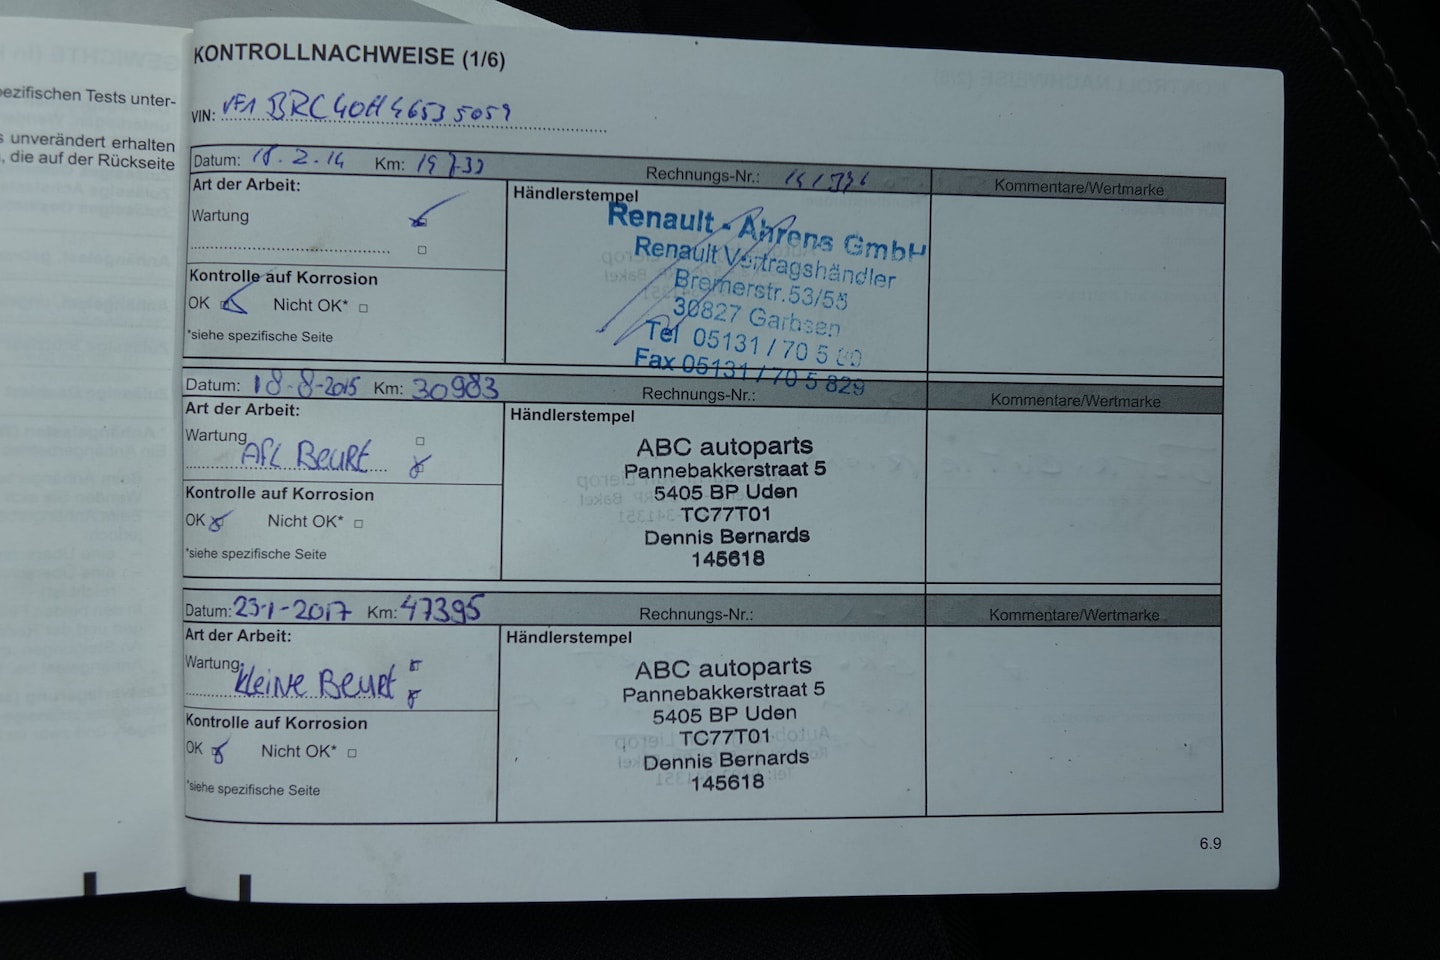 ezifischen Tests unter-
s unverändert erhalten
, die auf der Rückseite
KONTROLLNACHWEISE (1/6)
VIN: VF1BRC40H46535059
Datum: 18.2.14 Km: 19733 Rechnungs-Nr.: Kommentare/Wertmarke
Art der Arbeit:
Wartung
Kontrolle auf Korrosion
OK Nicht OK*
*siehe spezifische Seite
Händlerstempel
Renault - Ahrens GmbH
Renault Vertragshändler
Bremerstr. 53/55
30827 Garbsen
Tel 05131 / 70 5
Fax 05131 / 70 5 829
Datum: 18-8-2015 Km: 30983 Rechnungs-Nr.: Kommentare/Wertmarke
Art der Arbeit:
Wartung
Afl Beurt
Kontrolle auf Korrosion
OK Nicht OK*
*siehe spezifische Seite
Händlerstempel
ABC autoparts
Pannebakkerstraat 5
5405 BP Uden
TC77T01
Dennis Bernards
145618
Datum: 23-1-2017 Km: 47395 Rechnungs-Nr.: Kommentare/Wertmarke
Art der Arbeit:
Wartung
Kleine Beurt
Kontrolle auf Korrosion
OK Nicht OK*
*siehe spezifische Seite
Händlerstempel
ABC autoparts
Pannebakkerstraat 5
5405 BP Uden
TC77T01
Dennis Bernards
145618
6.9